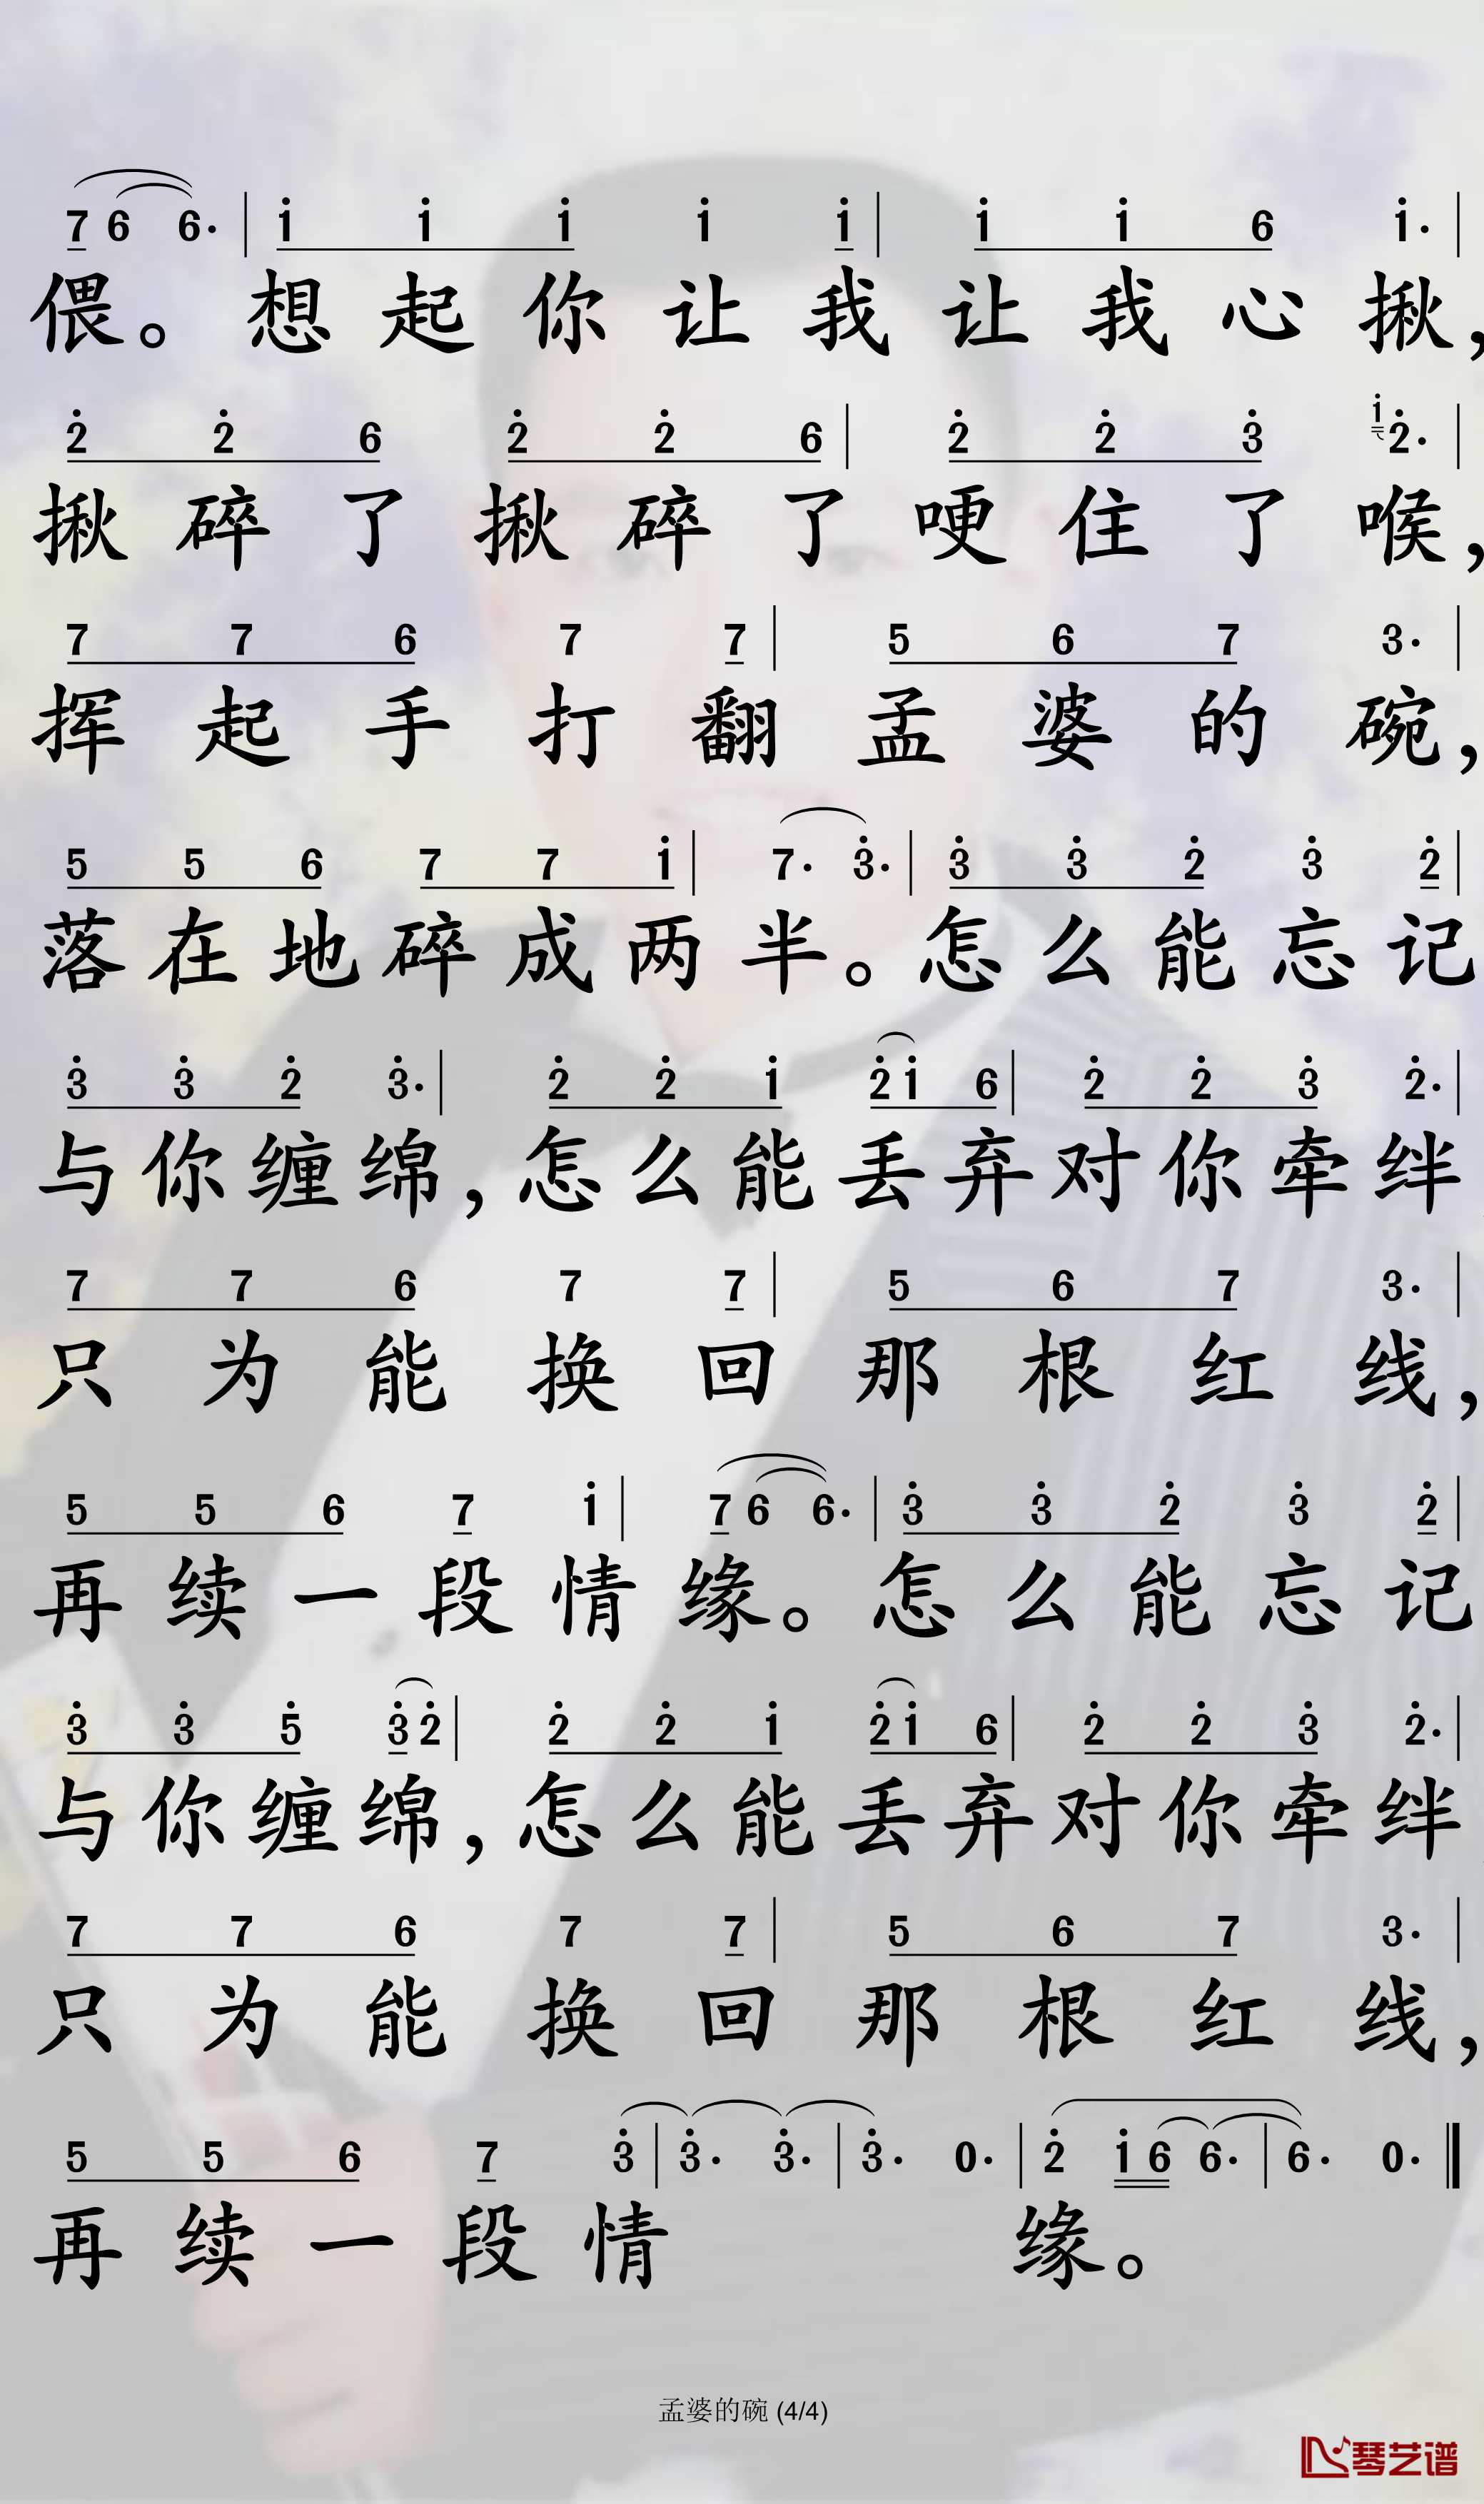 7 6 6· | i i i i i | i i 6 i· |
偎。想起你让我让我心揪,
2̇ 2̇ 6 2̇ 2̇ 6 | 2̇ 2̇ 3̇ i 2̇· |
揪碎了揪碎了哽住了喉,
7 7 6 7 7 | 5 6 7 3· |
挥起手打翻孟婆的碗,
5 5 6 7 7 i | 7· 3̇· | 3̇ 3̇ 2̇ 3̇ 2̇ |
落在地碎成两半。怎么能忘记
3̇ 3̇ 2̇ 3̇· | 2̇ 2̇ i 2̇ i 6 | 2̇ 2̇ 3̇ 2̇· |
与你缠绵,怎么能丢弃对你牵绊
7 7 6 7 7 | 5 6 7 3· |
只为能换回那根红线,
5 5 6 7 i | 7 6 6· | 3̇ 3̇ 2̇ 3̇ 2̇ |
再续一段情缘。怎么能忘记
3̇ 3̇ 5̇ 3̇ 2̇ | 2̇ 2̇ i 2̇ i 6 | 2̇ 2̇ 3̇ 2̇· |
与你缠绵,怎么能丢弃对你牵绊
7 7 6 7 7 | 5 6 7 3· |
只为能换回那根红线,
5 5 6 7 3̇ | 3̇· 3̇· | 3̇· 0· | 2̇ i 6 6· | 6· 0· ‖
再续一段情缘。
孟婆的碗 (4/4)
琴艺谱